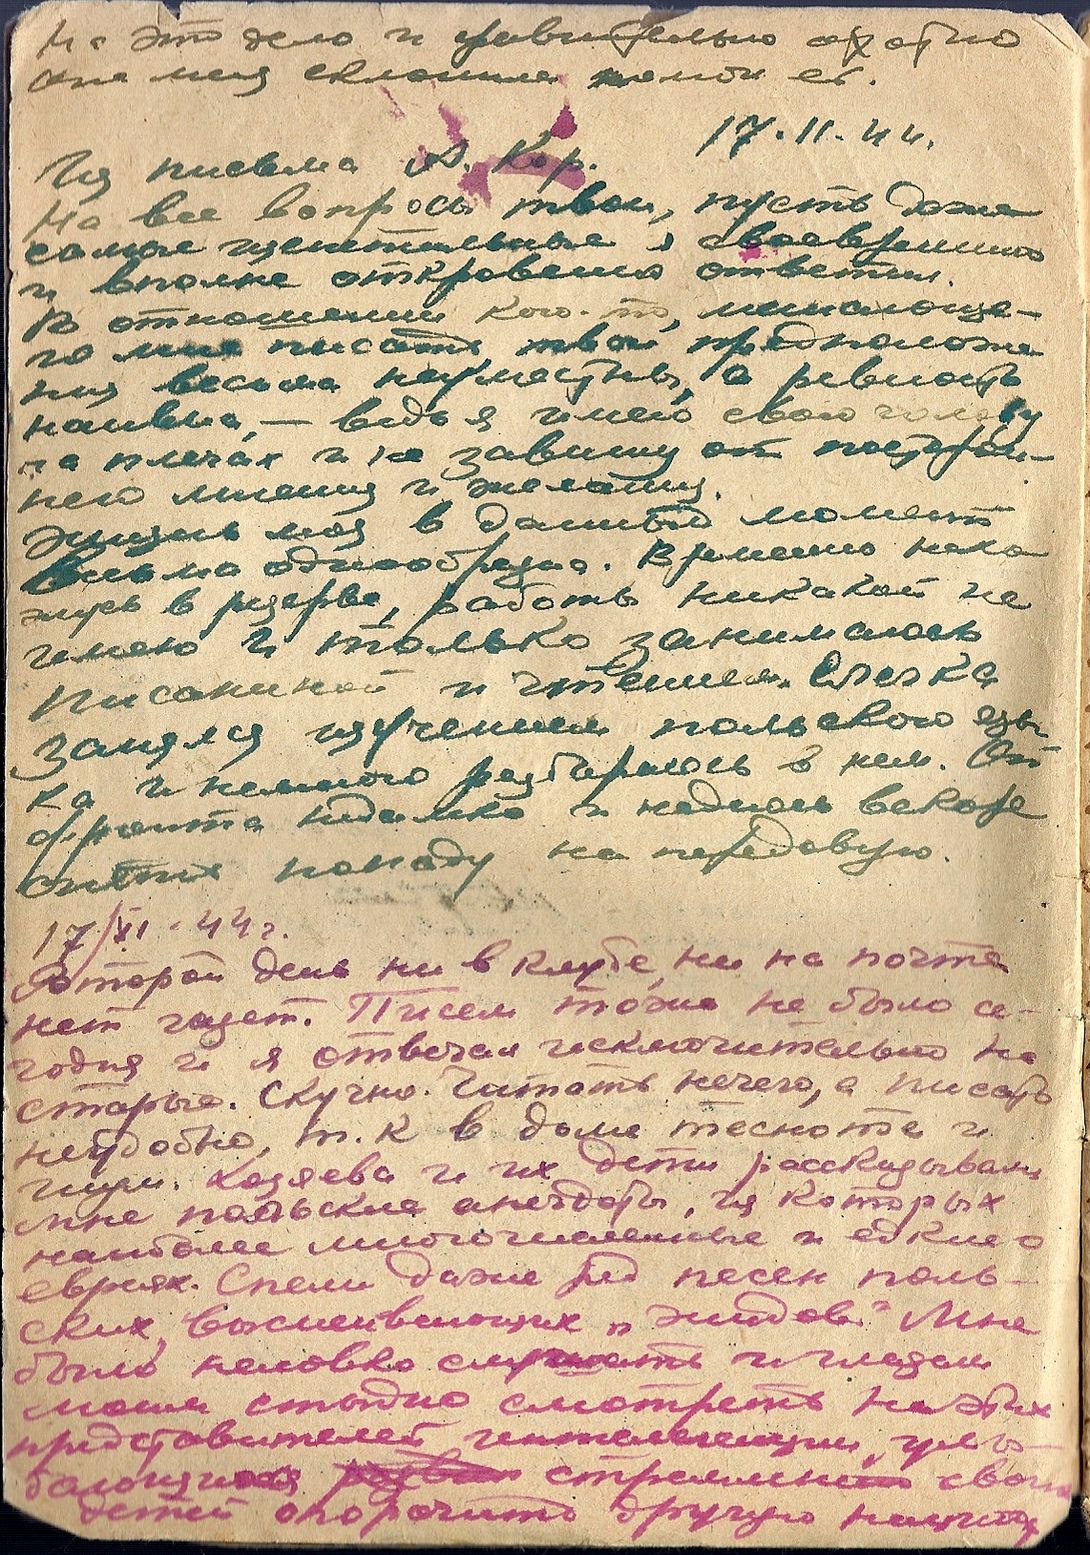 на это дело и удивительно охотно
она мея склонила помочь ей.
17.11.44.
Из письма А. Кор.
На все вопросы твои, пусть даже
самые щепетильные я своевременно
и вполне откровенно ответил.
В отношении кого-то, мешающе-
го мне писать, твои предположе
ния весьма неуместны, а ревность
наивна, — ведь я имею свою голову
на плечах и не завишу от посторон-
него мнения и желания.
Жизнь моя в данный момент
весьма однообразна. Временно нахо
жусь в резерве, работы никакой не
имею и только занимаюсь
писаниной и чтением. Слегка
занялся изучением польского язы
ка и немного разбираюсь в нем. От
фронта недалеко и надеюсь вскоре
опять попаду на передовую.
17/XI-44г.
Второй день ни в клубе, ни на почте
нет газет. Писем тоже не было се-
годня и я отвечал исключительно на
старые. Скучно. Читать нечего, а писать
неудобно, т.к в доме теснота и
шум. Хозяева и их дети рассказывали
мне польские анекдоты, из которых
наиболее многочисленные и едкие о
евреях. Спели даже ряд песен поль-
ских, высмеивающих „жидов" Мне
было неловко слушать и глазам
моим стыдно смотреть на этих
представителей интеллигенции, улы-
бающихся стремлению своих
детей опорочить другую нацию